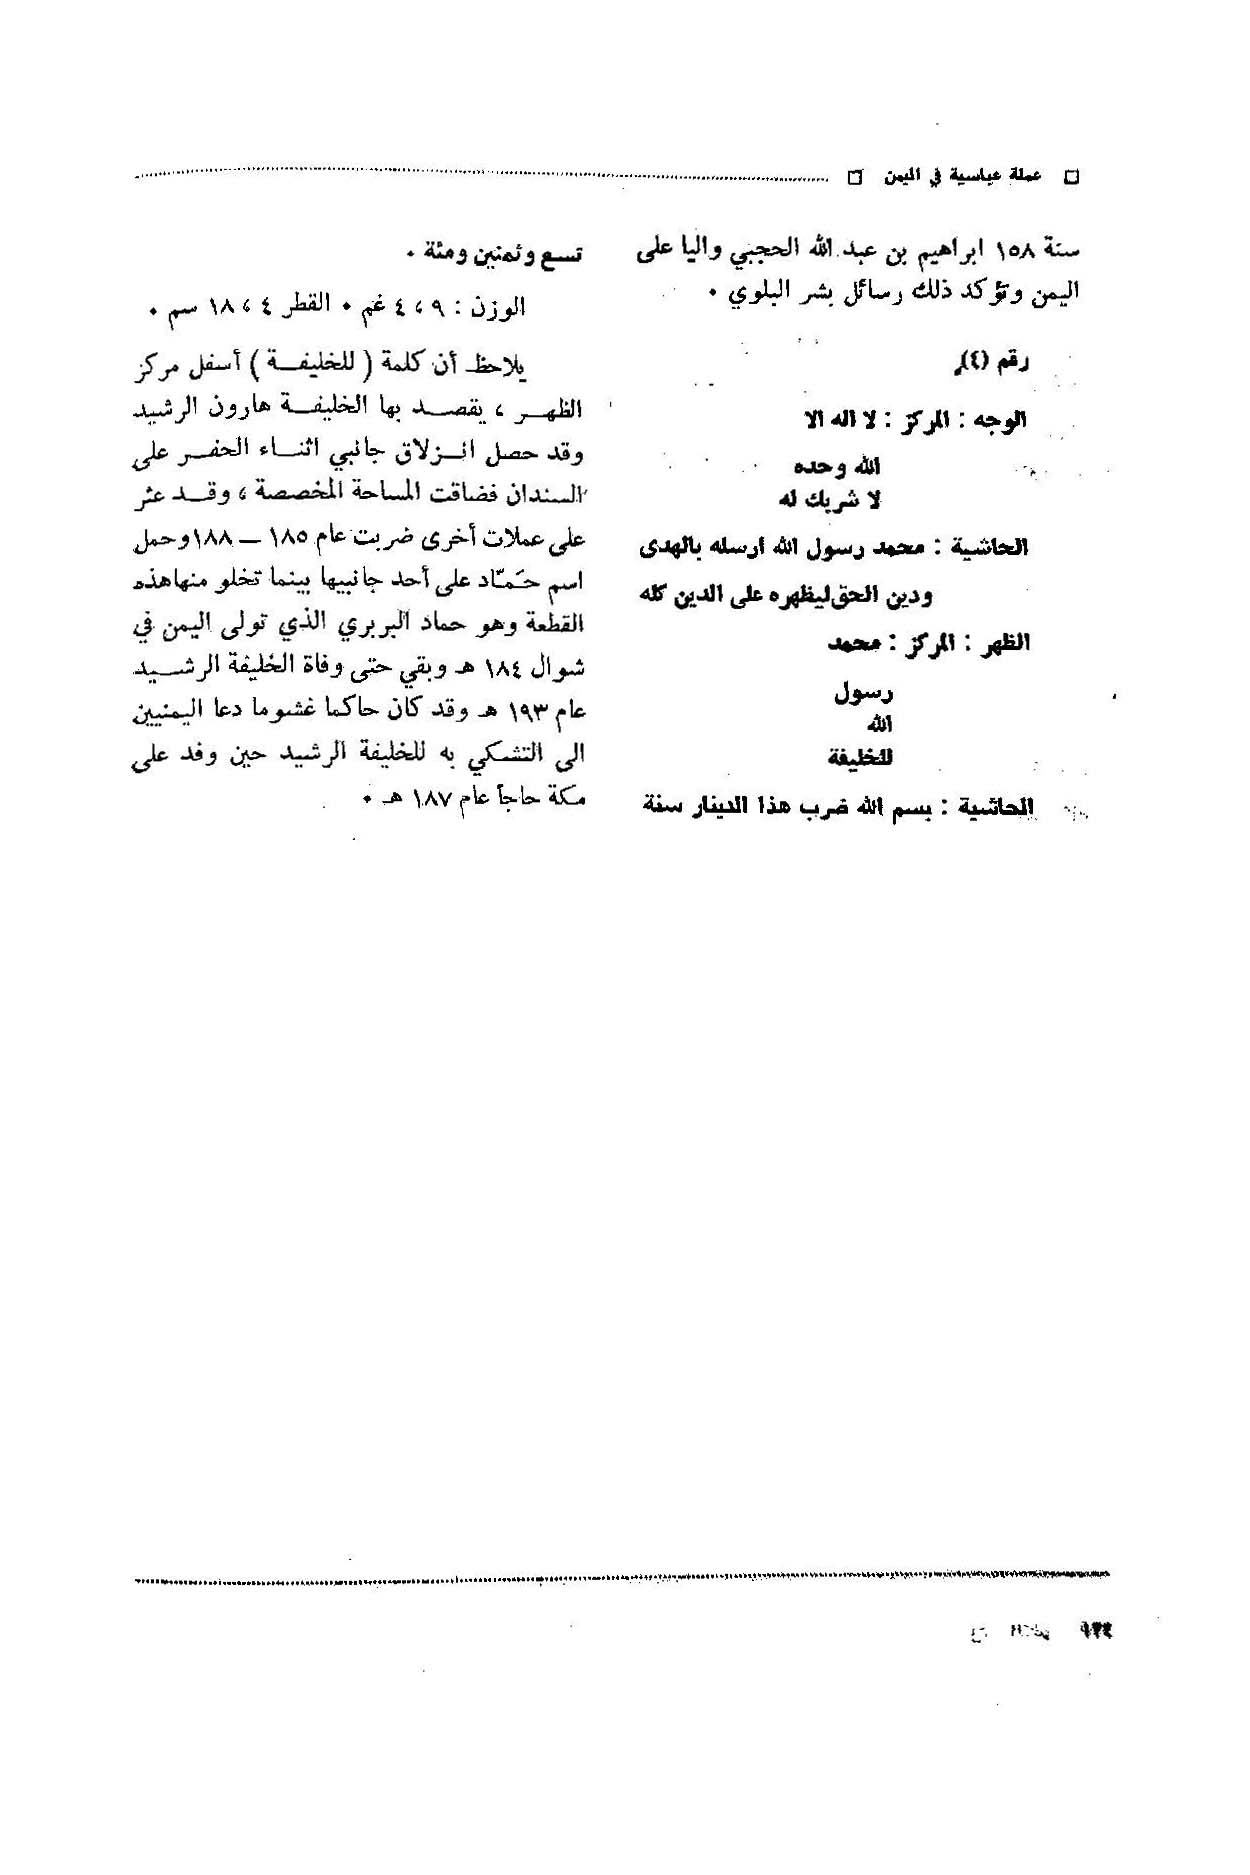 □ عملة عباسية في اليمن □
سنة ١٥٨ ابراهيم بن عبد الله الحجبي واليا على
اليمن وتؤكد ذلك رسائل بشر البلوي ٠
رقم (٤)
الوجه : المركز : لا اله الا
الله وحده
لا شريك له
الحاشية : محمد رسول الله ارسله بالهدى
ودين الحق ليظهره على الدين كله
الظهر : المركز : محمد
رسول
الله
للخليفة
الحاشية : بسم الله ضرب هذا الدينار سنة
تسع وثمنين ومئة ٠
الوزن : ٩ ، ٤ غم ٠ القطر ٤ ، ١٨ سم ٠
يلاحظ أن كلمة ( للخليفــة ) أسفل مركز
الظهــر ، يقصــد بها الخليفــة هارون الرشيد
وقد حصل انــزلاق جانبي اثنــاء الحفــر على
السندان فضاقت المساحة المخصصة ، وقــد عثر
على عملات أخرى ضربت عام ١٨٥ ــ ١٨٨ وحمل
اسم حَمّاد على أحد جانبيها بينما تخلو منها هذه
القطعة وهو حماد البربري الذي تولى اليمن في
شوال ١٨٤ هـ وبقي حتى وفاة الخليفة الرشــيد
عام ١٩٣ هـ وقد كان حاكما غشوما دعا اليمنيين
الى التشكي به للخليفة الرشيد حين وفد على
مكة حاجاً عام ١٨٧ هـ ٠